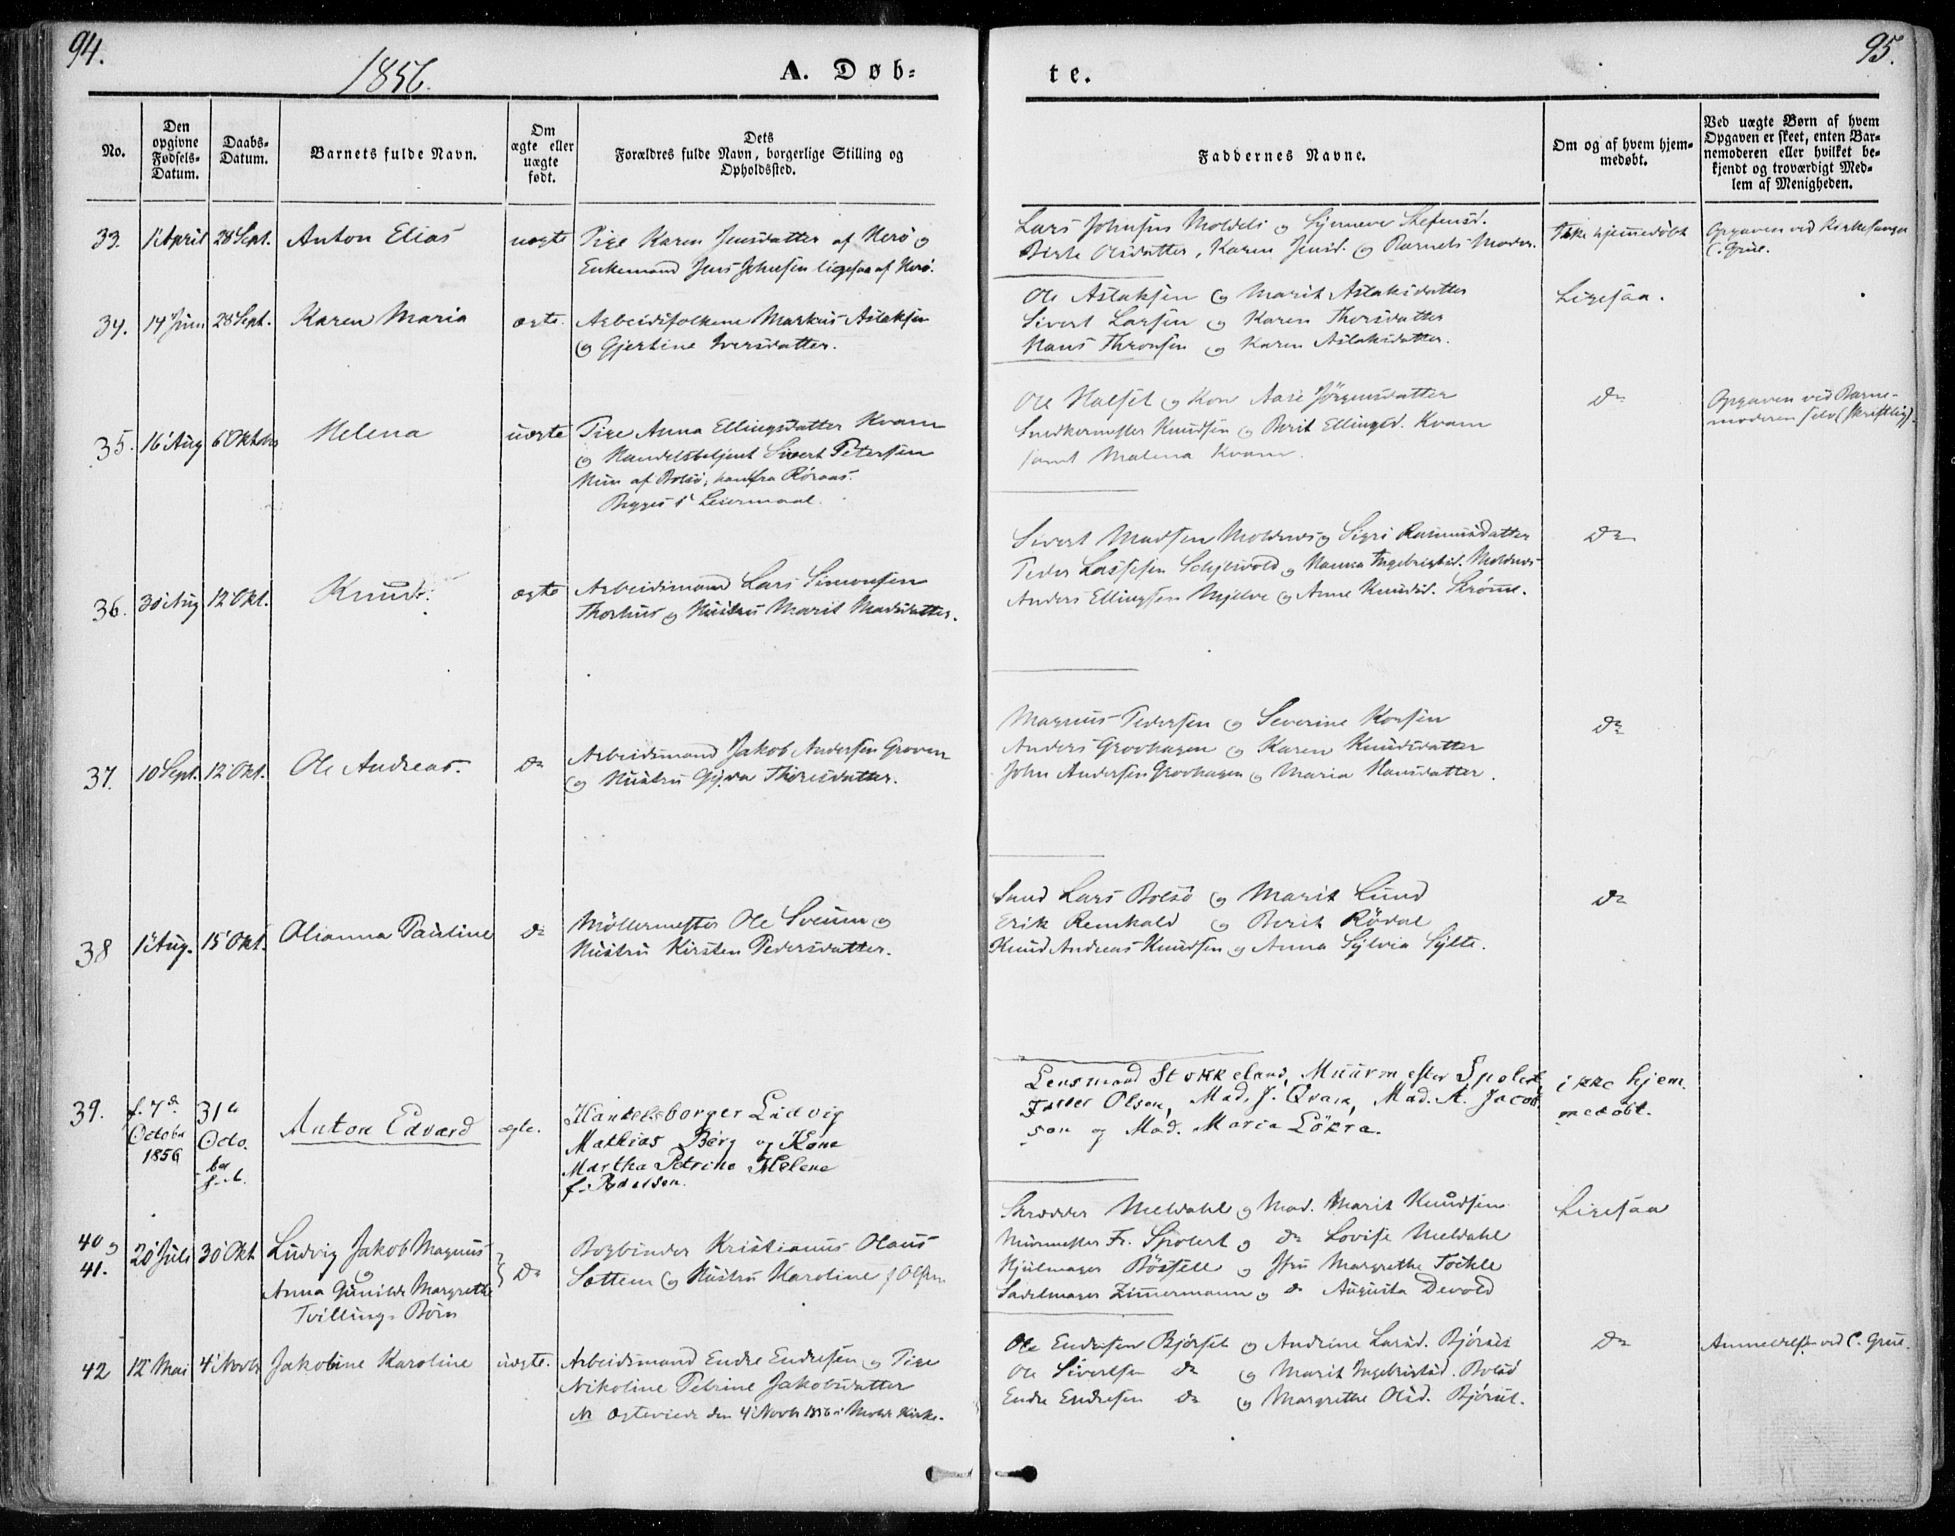 94.
1856.
A. Døb-
te.
95.
No.
Den opgivne Fødsels-Datum.
Daabs-Datum.
Barnets fulde Navn.
Om ægte eller uægte født.
Dets Forældres fulde Navn, borgerlige Stilling og Opholdssted.
Faddernes Navne.
Om og af hvem hjem-medøbt.
Ved uægte Børn af hvem Opgaven er skeet, enten Bar-nemoderen eller hvilket be-kjendt og troværdigt Med-lem af Menigheden.
33. 1 April 28 Sept. Anton Elias uægte Pige Karen Jensdatter af Herø og
Enkemand Jens Johnsen ligesaa af Herø.
Lars Johnsen Moldeli og Synneve Stefensd.
Berte Olsdatter, Karen Jensd. og Barnets Moder.
Ikke hjemmedøbt
Opgaven ved Kirkesanger
C. Grüe.
34. 14 Juni 28 Sept. Karen Maria ægte. Arbeidsfolkene Markus Aslaksen
og Gjertine Iversdatter.
Ole Aslaksen og Marit Aslaksdatter
Sivert Larsen og Karen Thorsdatter
Hans Thronsen og Karen Aslaksdatter.
Ligesaa.
35. 16 Aug 6 Oktbr Helena uægte Pige Anna Ellingsdatter Kvam
og Handelsbetjent Sivert Petersen
Hun af Bolsø, han fra Røraas.
Begges 1ste Leiermaal.
Ole Halset og Kone Aase Jørgensdatter
Snedkermester Knudsen og Berit Ellingsd. Kvam
samt Malena Kvam.
Do
Opgaven ved Barne-
moderen selv (skriftlig).
36. 30 Aug 12 Okt. Knud. ægte Arbeidsmand Lars Simonsen
Thorhus og Hustru Marit Madsdatter.
Sivert Madsen Moldnes og Sigri Rasmusdatter
Peder Lassesen Schjevold og Hanna Ingebrigtsd. Moldnes
Anders Ellingsen Mjelve og Anne Knudsd. Strømme.
Do
37. 10 Sept. 12 Okt. Ole Andreas. Do Arbeidsmand Jakob Andersen Groven
og Hustru Thoresdatter.
Magnus Pedersen og Severine Korsen
Anders Grovhagen og Karen Knudsdatter
John Andersen Grovhagen og Maria Hansdatter.
Do
38 1 Aug. 15 Okt. Olianna Pauline Do Møllermester Ole Sveum og
Hustru Kirsten Pedersdatter.
Lars Bolsø og Marit Lund
Erik Remhald og Berit Rødal
Knud Andreas Knudsen og Anna Sylvia Sylte.
Do
39. f. 7de October 1856 31te Octo-ber Anton Edvard ægte. Handelsborger Ludvig
Mathias Berg og Kone
Martha Petrine Helene
f. Pedersen.
Lensmand Stokkeland, Muurmester Spolert,
Olsen, Mad. J. Qvam, Mad. A. Jacob-
sen og Mad. Maria Løkra.
ikke hjem-
medøbt.
40 og
41. 20 Juli 30 Okt Ludvig Jakob Magnus
og
Anna Gunilde Margrethe
Tvillings Børn
Do Bogbinder Kristianus Olaus
Sættem og Hustru Karoline f. Olsen
Skrædder Meldahl og Mad. Marit Knudsen
Murmester Fr. Spolert og Do Lovise Meldahl
Hjulmager Bøssell og Fru Margrethe Tøchle
Sadelmager Zimmermann og Do Augusta Devold
Ligesaa
42 12 Mai 4 Novbr Jakobine Karoline uægte. Arbeidsmand Endre Endresen og Pige
Nikoline Petrine Jakobsdatter
NB Ægteviede den 4 Novbr 1856 i Molde Kirke.
Ole Endresen Bjørset og Andrine Larsd. Bjørset
Ole Sivertsen Do og Marit Ingebrigtsd. Bolsø
Endre Endresen Do og Margrethe Olsd. Bjørset.
Do
Anmeldelsen ved C. Grüe.